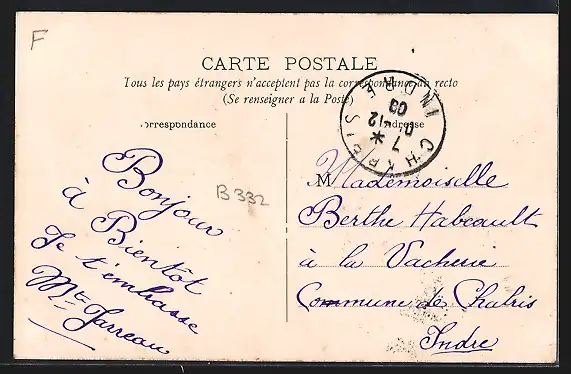 F
CARTE POSTALE
Tous les pays étrangers n'acceptent pas la correspondance au recto
(Se renseigner a la Poste)
orrespondance
Adresse
Bonjour
à Bientôt
Je t'embrasse
Mte Jarreau
B 332
CHABRIS
INDRE
7
12
09
Mademoiselle
Berthe Habeault
à la Vacherie
Commune de Chabris
Indre